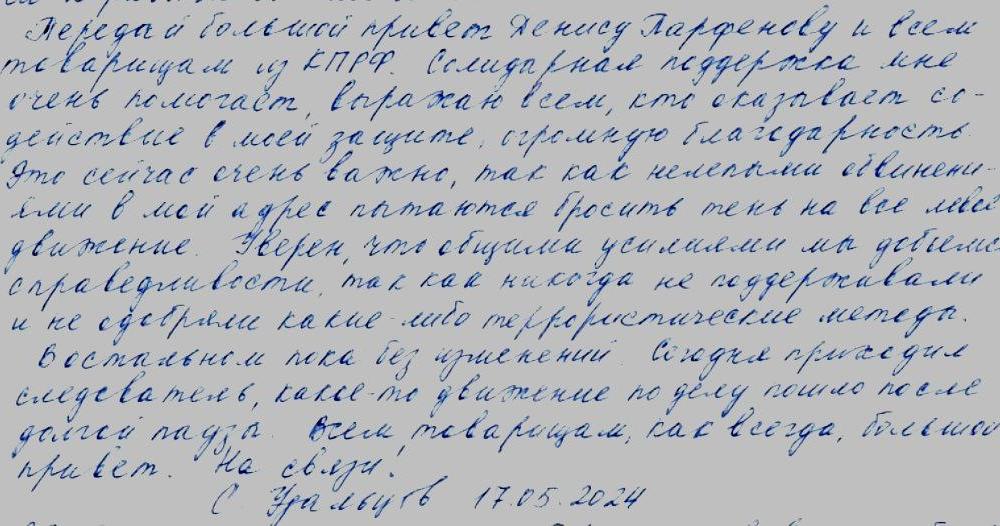 Передай большой привет Денису Парфенову и всем
товарищам из КПРФ. Солидарная поддержка мне
очень помогает, выражаю всем, кто оказывает со-
действие в моей защите, огромную благодарность.
Это сейчас очень важно, так как нелепыми обвинени-
ями в мой адрес пытаются бросить тень на все левое
движение. Уверен, что общими усилиями мы добьемся
справедливости, так как никогда не поддерживали
и не одобряли какие-либо террористические методы.
В остальном пока без изменений. Сегодня приходил
следователь, какое-то движение по делу пошло после
долгой паузы. Всем товарищам, как всегда, большой
привет. На связи.
С. Удальцов 17.05.2024